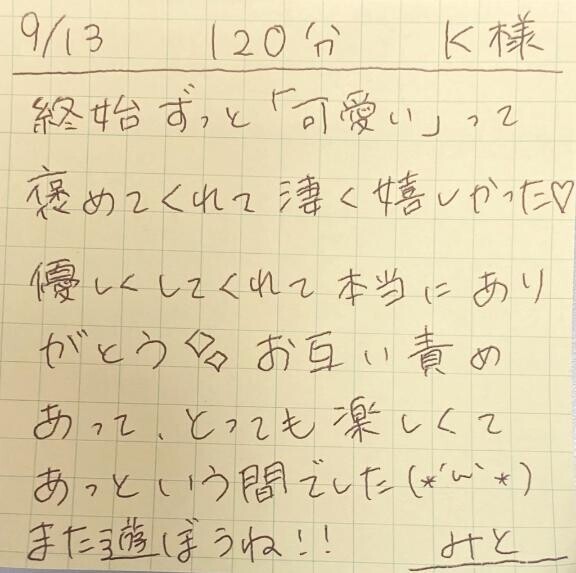 9/13 120分 K様
終始ずっと「可愛い」って
褒めてくれて凄く嬉しかった♡
優しくしてくれて本当にあり
がとう◇◇お互い責め
あって、とっても楽しくて
あっという間でした(*´ω`*)
また遊ぼうね!! みと